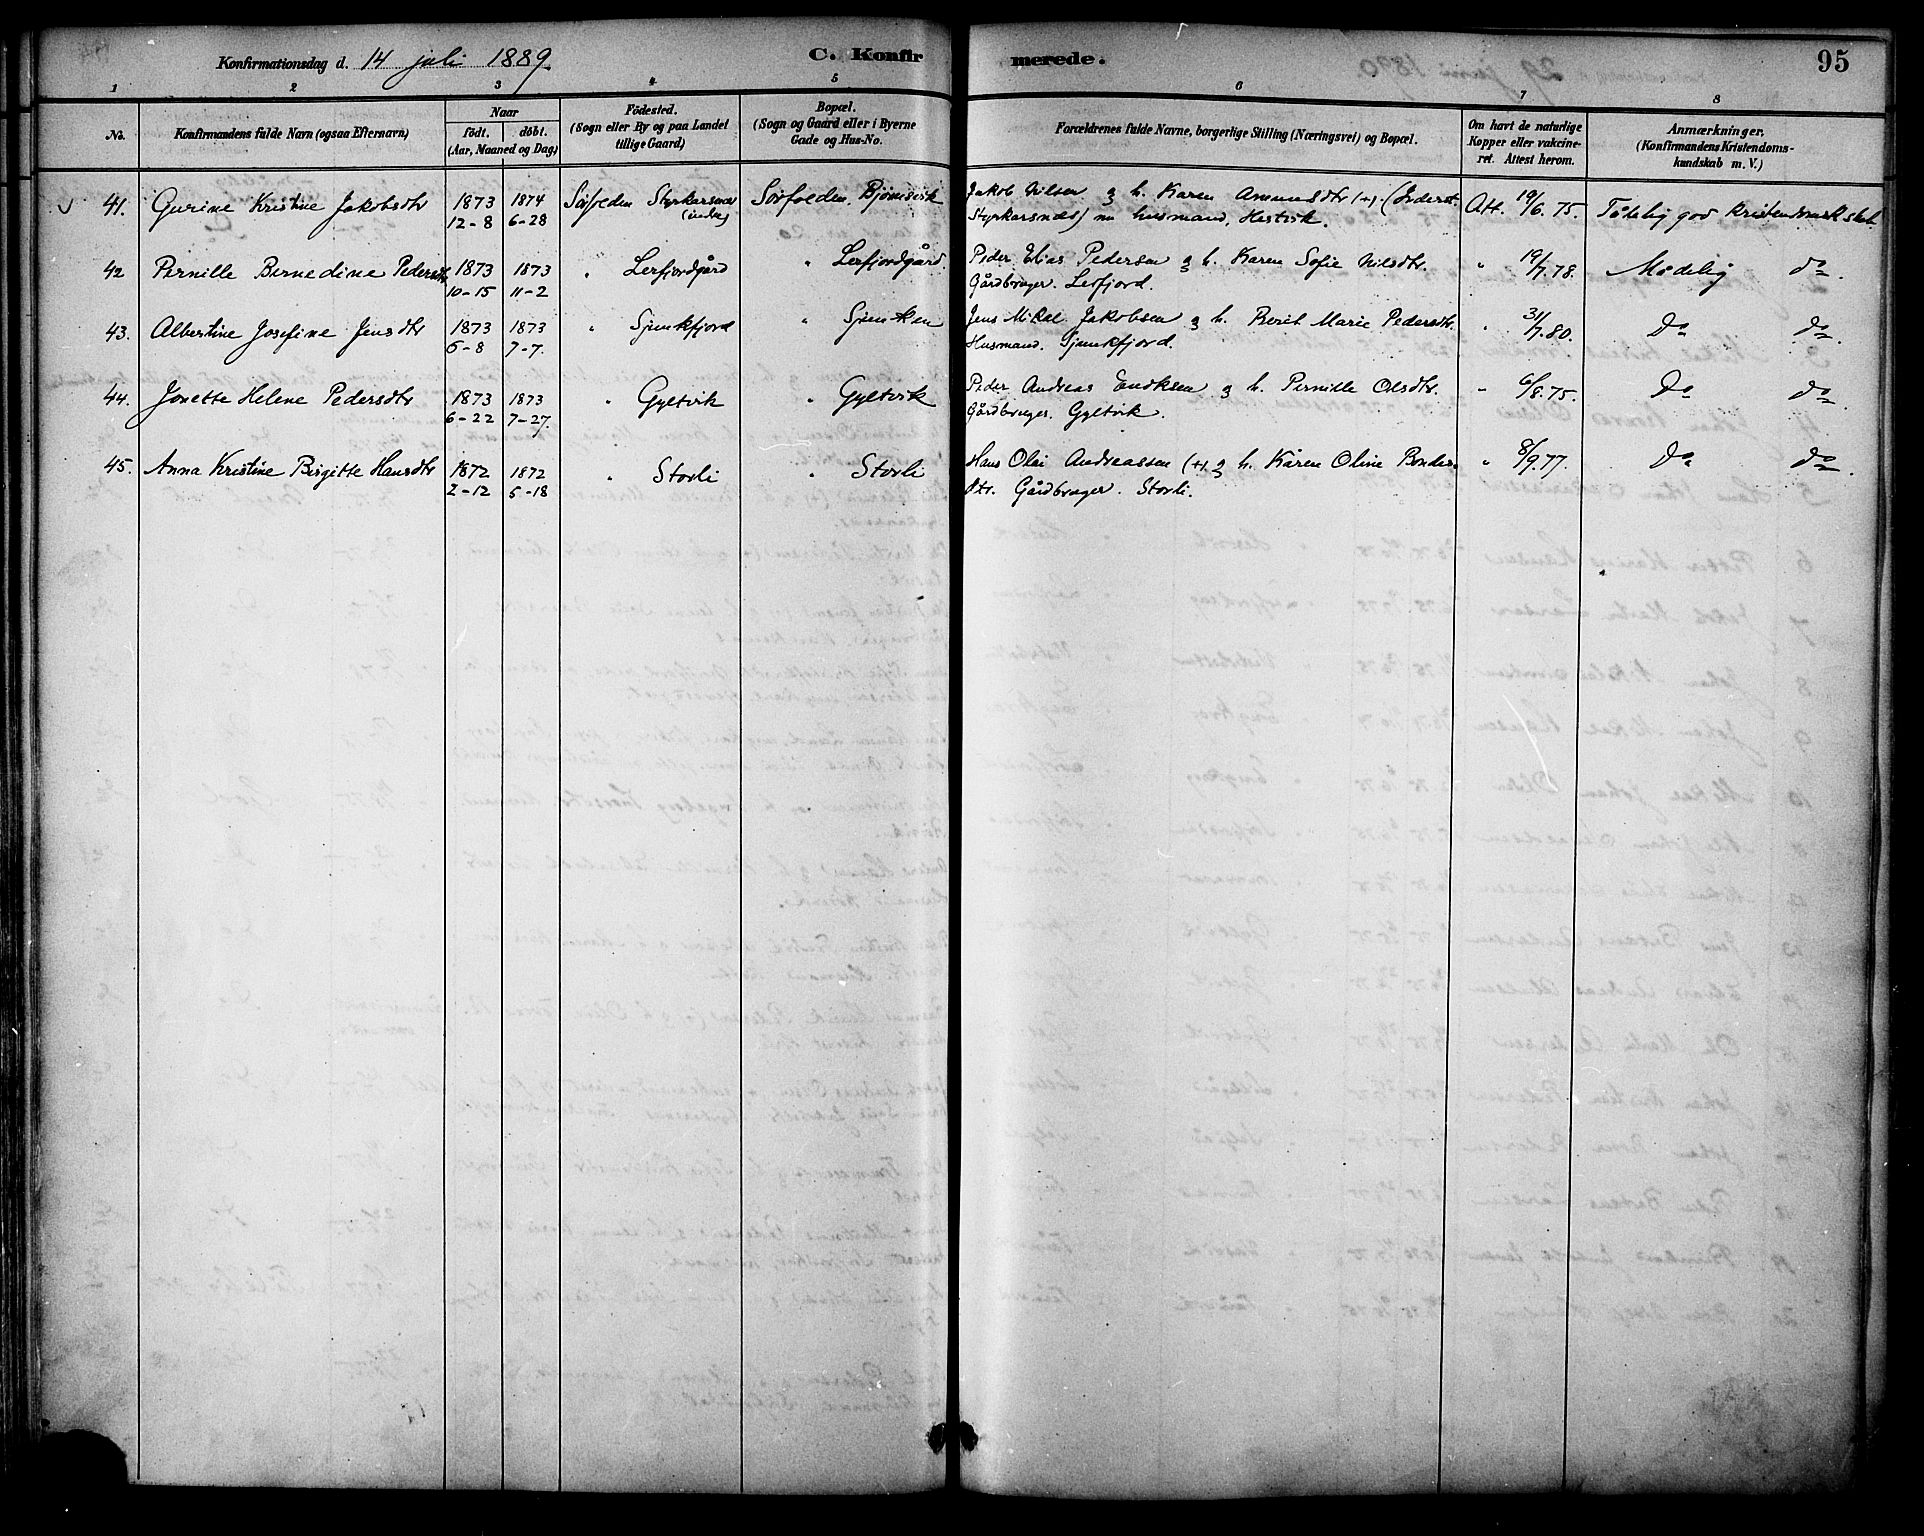 Konfirmationsdag d. 14 juli 1889. C. Konfirmerede. 95
1 2 3 4 5 6 7 8
No. Konfirmandens fulde Navn (ogsaa Efternavn) Naar födt. döbt. (Aar, Maaned og Dag) Födested. (Sogn eller By og paa Landet tillige Gaard) Bopæl. (Sogn og Gaard eller i Byerne Gade og Hus-No. Forældrenes fulde Navne, borgerlige Stilling (Næringsvei) og Bopæl. Om havt de naturlige Kopper eller vakcineret. Attest herom. Anmærkninger. (Konfirmandens Kristendomskundskab m. V.)
41. Gurine Kristine Jakobsdtr 1873 1874 Sörfolden Styrkarsnes Sörfolden. Bjørnsvik Jakob Nilsen & h. Karen Amundsdtr (+) (Inderst. Att. 19/6. 75. Tålelig god kristendomskskab.
12-8 6-28 (indre) Styrkarsnæs) nu husmand, Hestvik.
42 Pernille Bernedine Pedersdtr 1873 1873 " Lerfjordgård " Lerfjordgård Peder Elias Pedersen & h. Karen Sofie Nilsdtr. " 19/7.78. Mådelig do.
10-15 11-2 Gårdbruger. Lerfjord.
43. Albertine Josefine Jensdtr 1873 1873 " Sjunkfjord " Sjunken Jens Mikal Jakobsen & h. Berit Marie Pedersdtr. " 31/7.80. Do do.
6-8 7-7. Husmand. Sjunkfjord.
44. Jonette Helene Pedersdtr 1873 1873 " Gyltvik " Gyltvik Peder Andreas Enoksen & h. Pernille Olsdtr. " 6/8.75. Do do.
6-22 7-27. Gårdbruger. Gyltvik.
45. Anna Kristine Birgitte Hansdtr 1872 1872 " Storli " Storli Hans Olai Andreassen (+) & h. Karen Oline Bonders- " 8/9.77. Do do.
2-12 5-18 dtr. Gårdbruger. Storli.